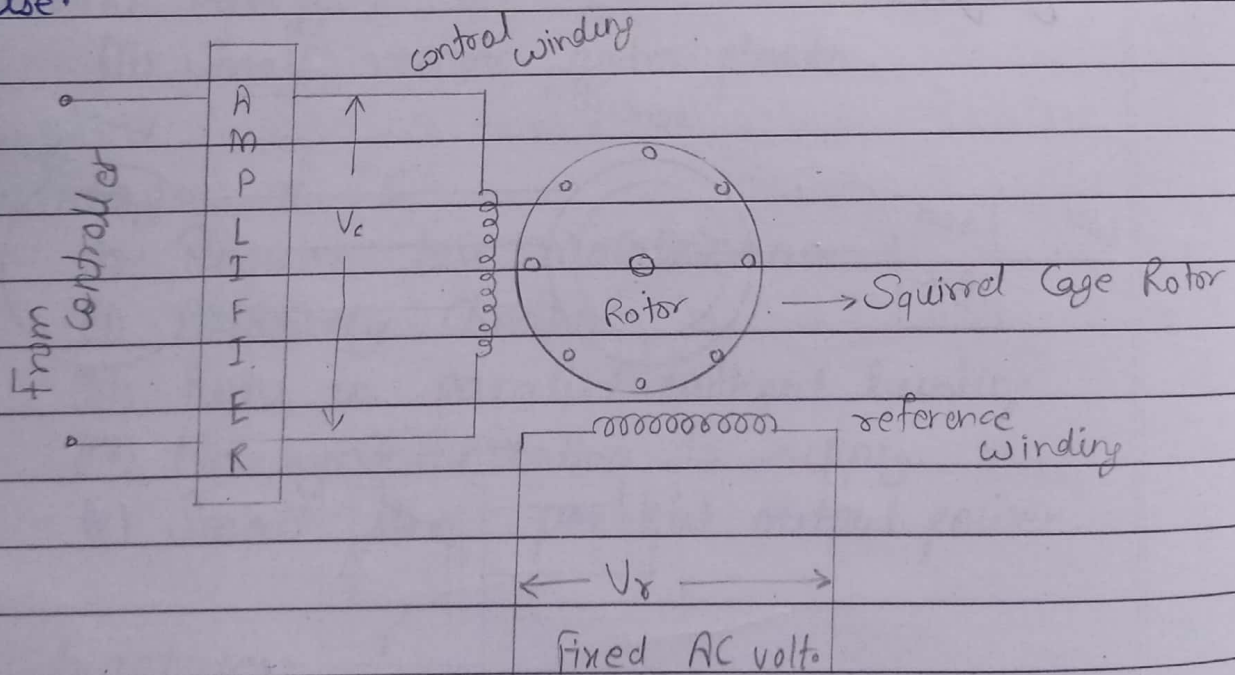 use.
control winding
From controller
AMPLIFIER
Vc
Rotor
Squirrel Cage Rotor
reference
winding
Vr
Fixed AC volt.